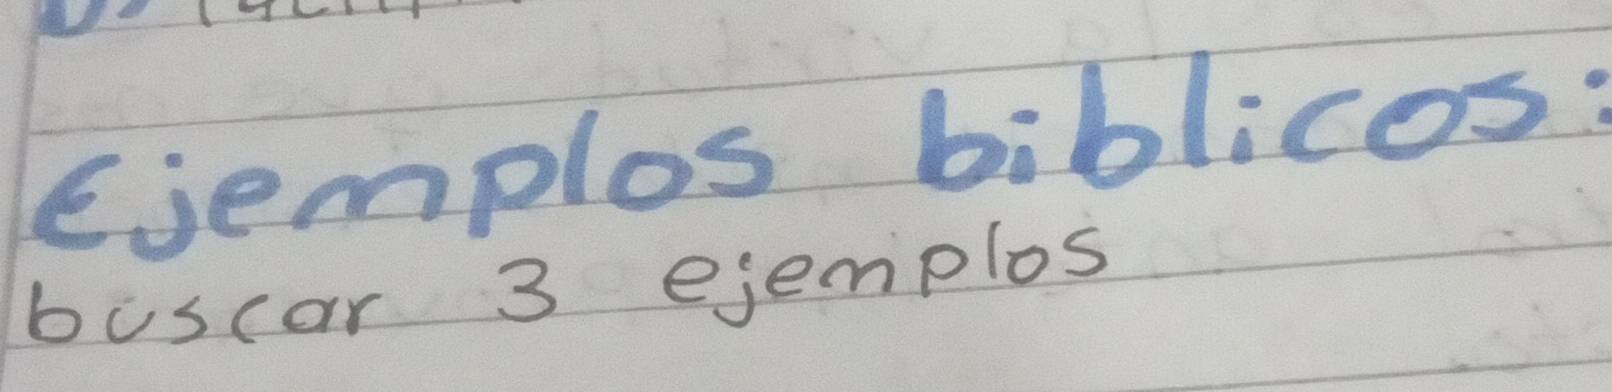 Ejemplos biblicos:
buscar 3 ejemplos